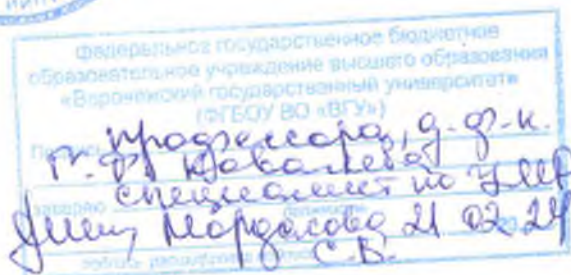 Федеральное государственное бюджетное
образовательное учреждение высшего образования
«Воронежский государственный университет»
(ФГБОУ ВО «ВГУ»)
профессора, д.ф.н.
Г.Ф. Ковалева
заверяю специалист по УМР
должность
Мордасова 21 02 24
С.В.